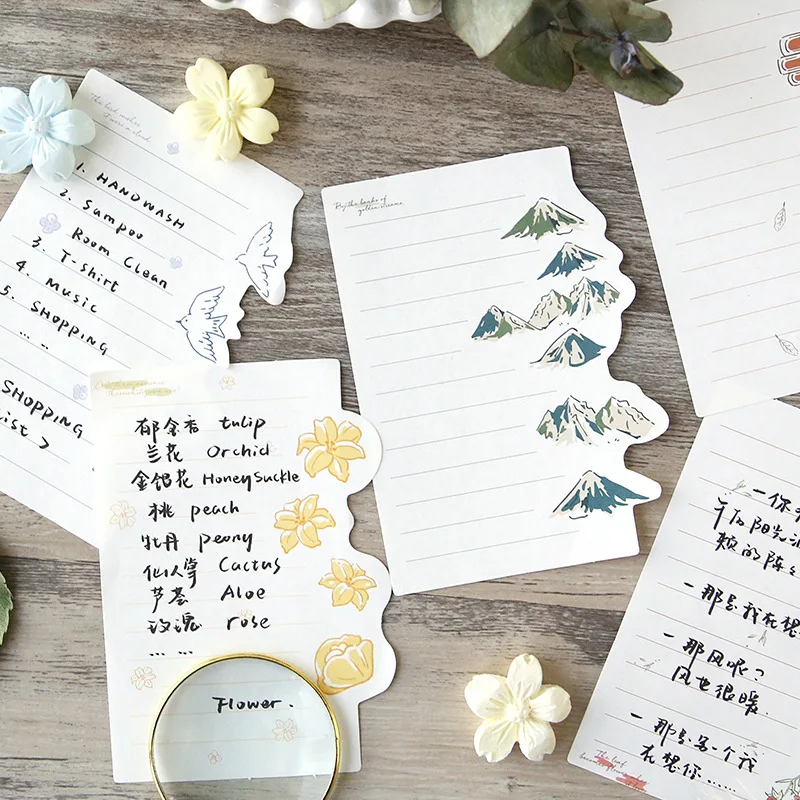 1. HANDWASH
2. Sampoo
Room Clean
3. T-shirt
4. Music
5. SHOPPING
... ..
SHOPPING
ist >
By the banks of
golden dreams
郁金香 tulip
兰花 Orchid
金银花 HoneySuckle
桃 peach
牡丹 peony
仙人掌 Cactus
芦荟 Aloe
玫瑰 rose
... ...
Flower.
一你
午后阳光
一那是我在想
一那风呢?
风也很暖.
一那是另一个我
在想你......